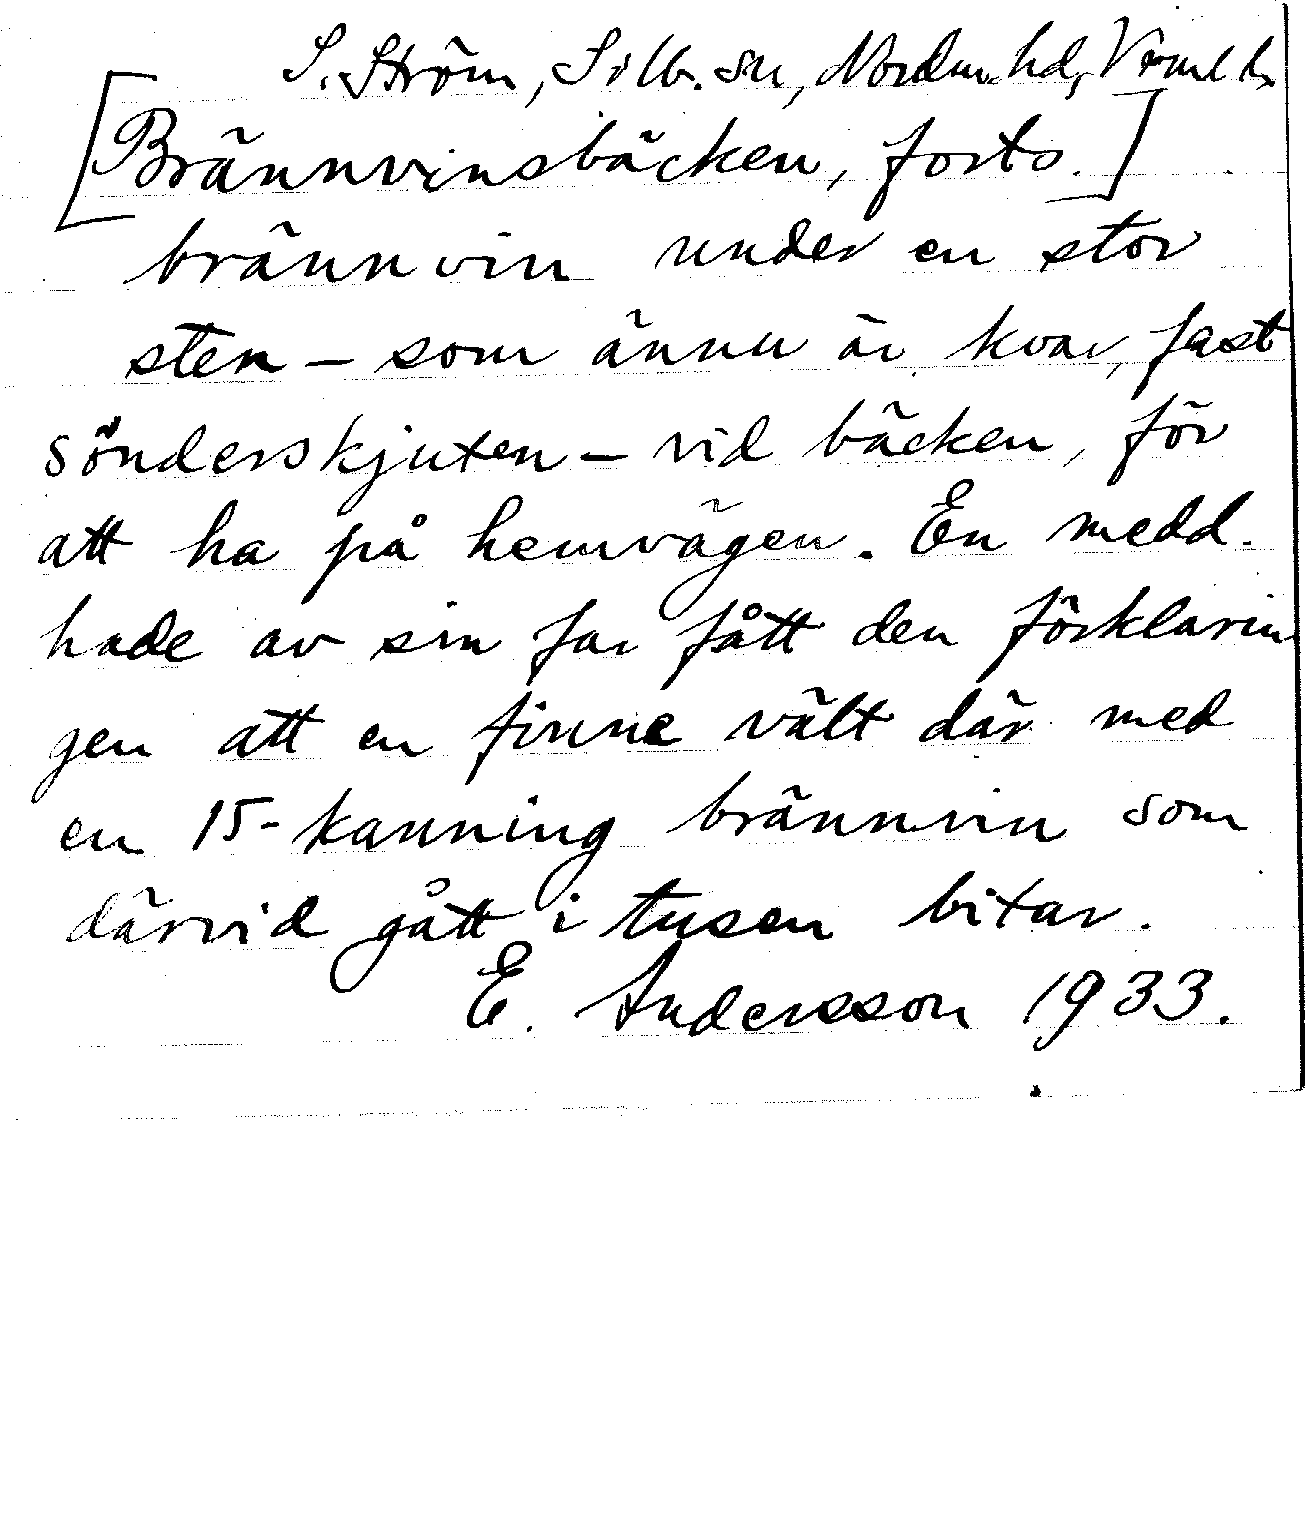 S. Ström, Silb. sn, Nordm. hd, Vrml l.
[Brännvinsbäcken, forts.]
brännvin under en stor
sten – som ännu är kvar, fast
sönderskjuten – vid bäcken, för
att ha på hemvägen. En medd.
hade av sin far fått den förklarin
gen att en finne vält där med
en 15-kanning brännvin som
därvid gått i tusen bitar.
E. Andersson 1933.